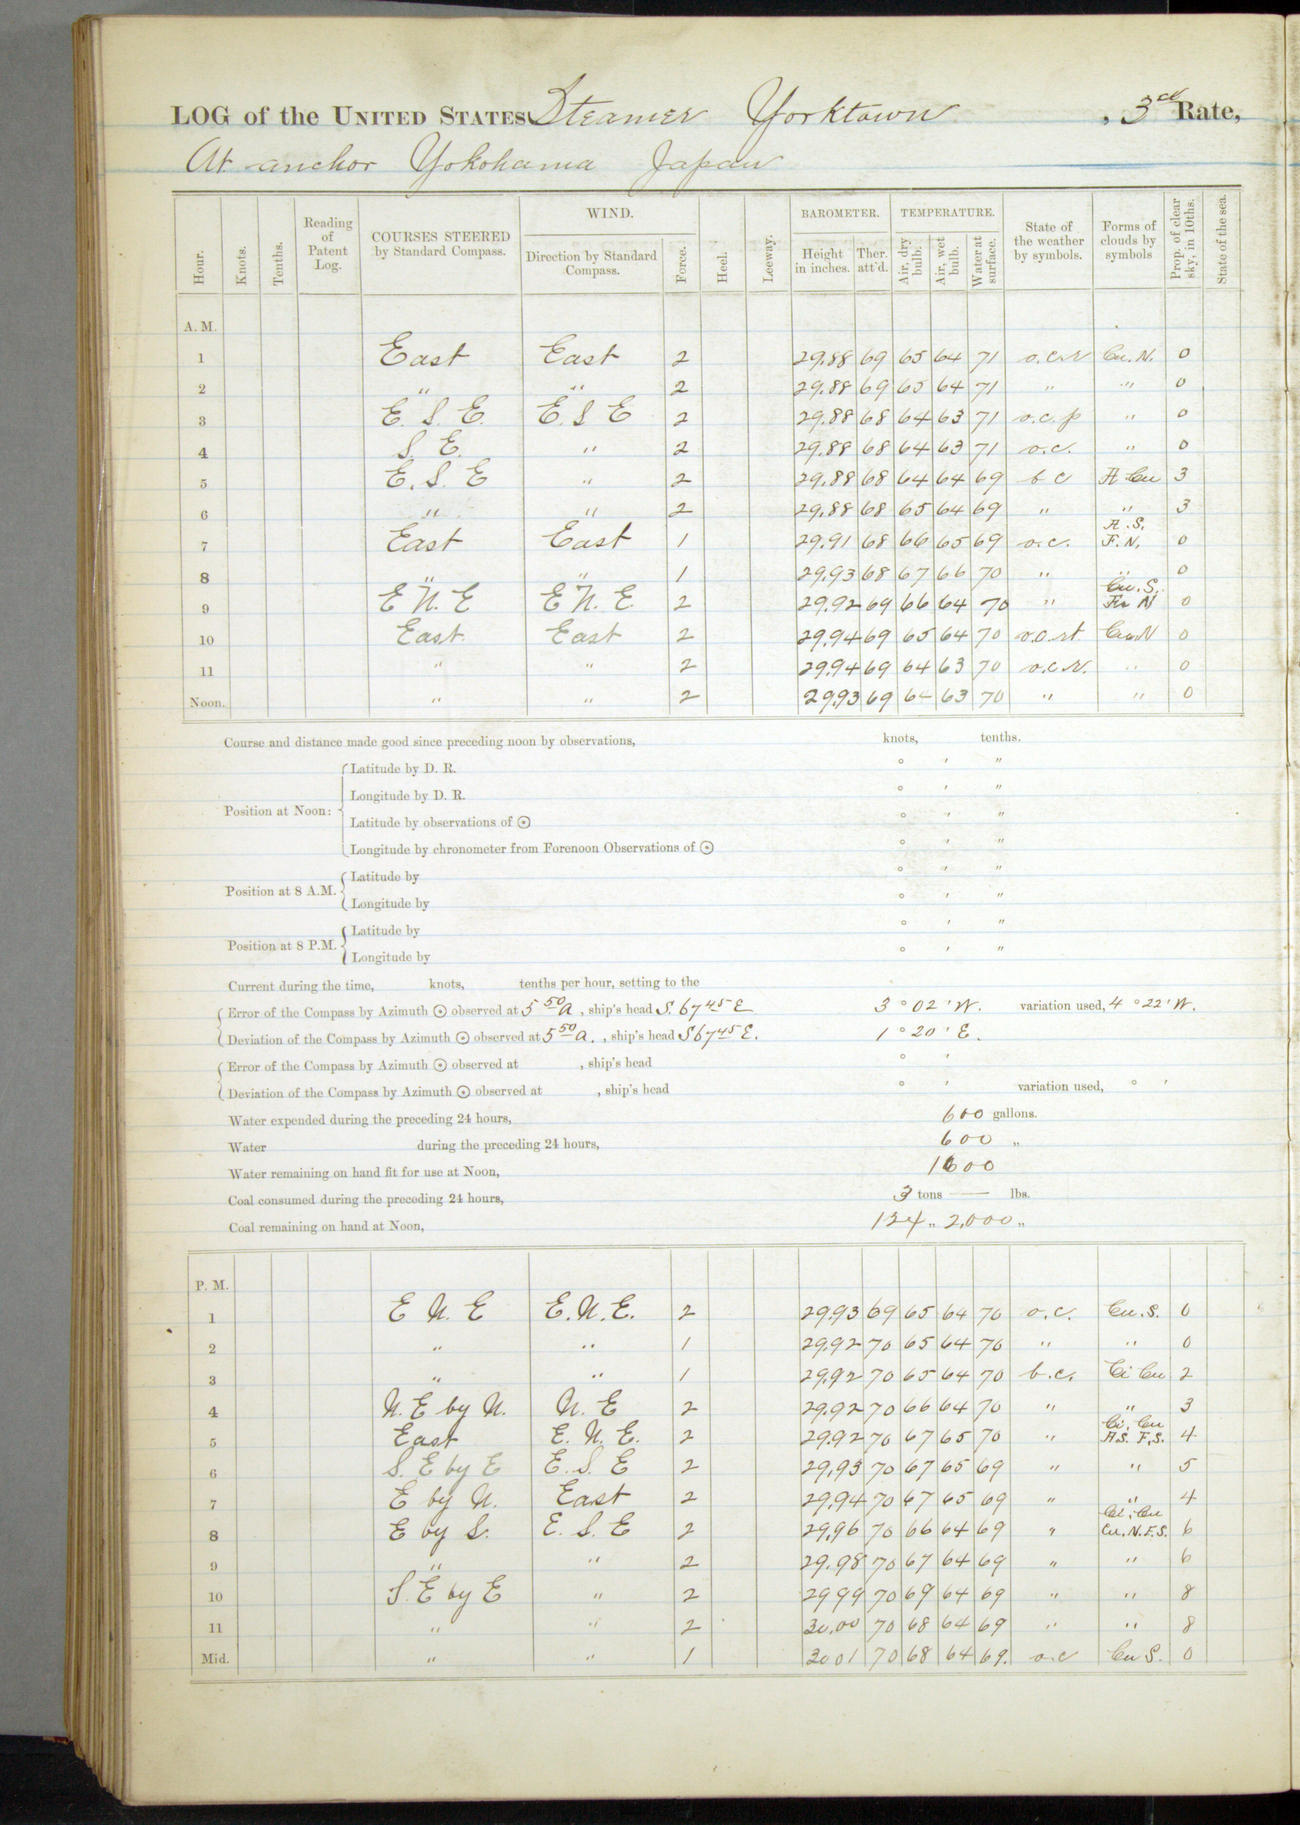 LOG of the UNITED STATES Steamer Yorktown , 3rd Rate,
At anchor Yokohama Japan
Hour. Knots. Tenths. Reading of Patent Log. COURSES STEERED by Standard Compass. WIND. Direction by Standard Compass. Force. Heel. Leeway. BAROMETER. Height in inches. Ther. att'd. TEMPERATURE. Air, dry bulb. Air, wet bulb. Water at surface. State of the weather by symbols. Forms of clouds by symbols Prop. of clear sky, in 10ths. State of the sea.
A. M.
1 East East 2 29.88 69 65 64 71 o.c.r Cu. N. 0
2 " " 2 29.88 69 65 64 71 " " 0
3 E. S. E. E. S E 2 29.88 68 64 63 71 o.c.p " 0
4 S. E. " 2 29.88 68 64 63 71 o.c. " 0
5 E. S. E " 2 29.88 68 64 64 69 b c A Cu 3
6 " " 2 29.88 68 65 64 69 " " 3
7 East East 1 29.91 68 66 65 69 o.c. A.S. F.N. 0
8 " " 1 29.93 68 67 66 70 " " 0
9 E N. E E N. E. 2 29.92 69 66 64 70 " Cu. S. Fr N 0
10 East East 2 29.94 69 65 64 70 Cu N 0
11 " " 2 29.94 69 64 63 70 o.c.r. " 0
Noon. " " 2 29.93 69 64 63 70 " " 0
Course and distance made good since preceding noon by observations, knots, tenths.
Position at Noon: Latitude by D. R. ° ′ ″
Longitude by D. R. ° ′ ″
Latitude by observations of ☉ ° ′ ″
Longitude by chronometer from Forenoon Observations of ☉ ° ′ ″
Position at 8 A.M. Latitude by ° ′ ″
Longitude by ° ′ ″
Position at 8 P.M. Latitude by ° ′ ″
Longitude by ° ′ ″
Current during the time, knots, tenths per hour, setting to the
Error of the Compass by Azimuth ☉ observed at 5 50 a , ship's head S. 67 45 E 3 ° 02 ′ W. variation used, 4 ° 22 ′ W.
Deviation of the Compass by Azimuth ☉ observed at 5 50 a. , ship's head S 67 45 E. 1 ° 20 ′ E.
Error of the Compass by Azimuth ☉ observed at , ship's head ° ′
Deviation of the Compass by Azimuth ☉ observed at , ship's head ° ′ variation used, ° ′
Water expended during the preceding 24 hours, 600 gallons.
Water during the preceding 24 hours, 600 "
Water remaining on hand fit for use at Noon, 1600
Coal consumed during the preceding 24 hours, 3 tons — lbs.
Coal remaining on hand at Noon, 124 " 2,000 "
P. M.
1 E N. E E. N. E. 2 29.93 69 65 64 70 o.c. Cu. S. 0
2 " " 1 29.92 70 65 64 70 " " 0
3 " " 1 29.92 70 65 64 70 b.c. Ci Cu 2
4 N. E by N. N. E 2 29.92 70 66 64 70 " " 3
5 East E. N. E. 2 29.92 70 67 65 70 " Ci. Cu A S. F.S. 4
6 S. E by E E. S. E 2 29.93 70 67 65 69 " " 5
7 E by N. East 2 29.94 70 67 65 69 " " 4
8 E by S. E. S. E 2 29.96 70 66 64 69 " Ci. Cu Cu. N. F.S. 6
9 " " 2 29.98 70 67 64 69 " " 6
10 S. E by E " 2 29 99 70 69 64 69 " " 8
11 " " 2 30.00 70 68 64 69 " " 8
Mid. " " 1 30 01 70 68 64 69. o.c Cu S. 0